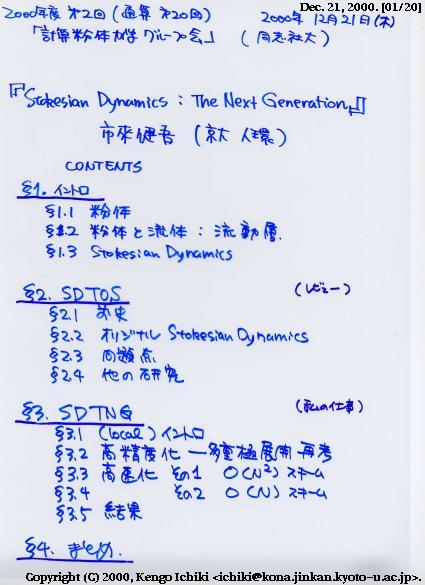 Dec. 21, 2000. [01/20]
2000年度 第2回 (通算 第20回) 2000年 12月21日(木)
「計算粉体力学グループ会」 (同志社大)
『Stokesian Dynamics : The Next Generation』
市來健吾 (京大 人環)
CONTENTS
§1. イントロ
§1.1 粉体
§1.2 粉体と流体 : 流動層.
§1.3 Stokesian Dynamics
§2. SDTOS (レビュー)
§2.1 前史
§2.2 オリジナル Stokesian Dynamics
§2.3 問題点
§2.4 他の研究
§3. SDTNG (私の仕事)
§3.1 (local) イントロ
§3.2 高精度化 — 多重極展開 再考
§3.3 高速化 その1 O(N²) スキーム
§3.4 その2 O(N) スキーム
§3.5 結果
§4. まとめ.
Copyright (C) 2000, Kengo Ichiki <ichiki@kona.jinkan.kyoto-u.ac.jp>.